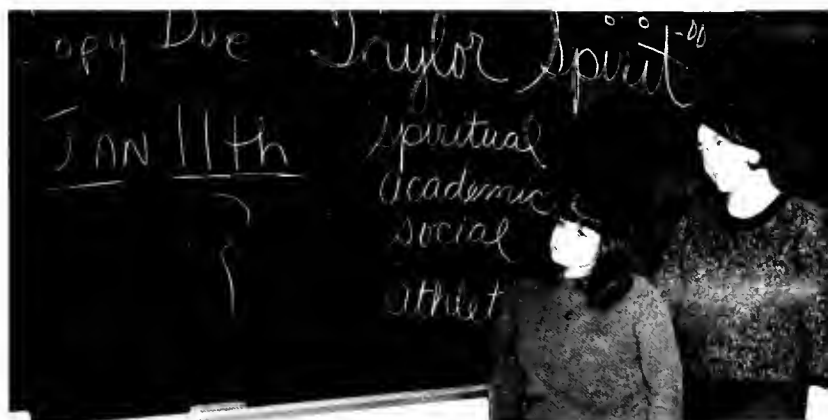 opy Due
JAN 11th
?
Taylor Spirit
spiritual
academic
social
athlet